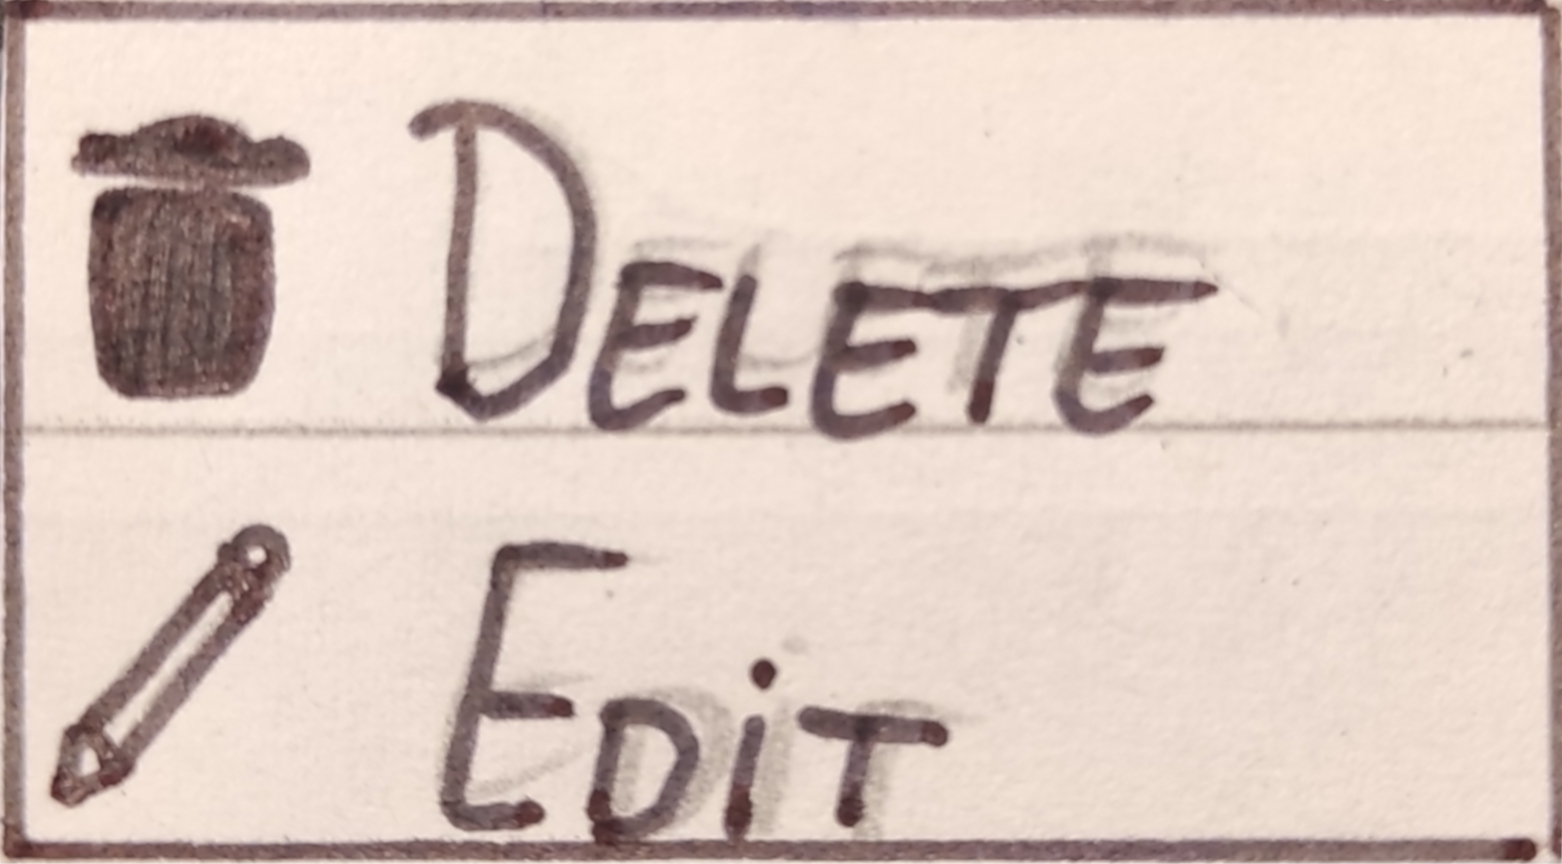 DELETE
EDiT